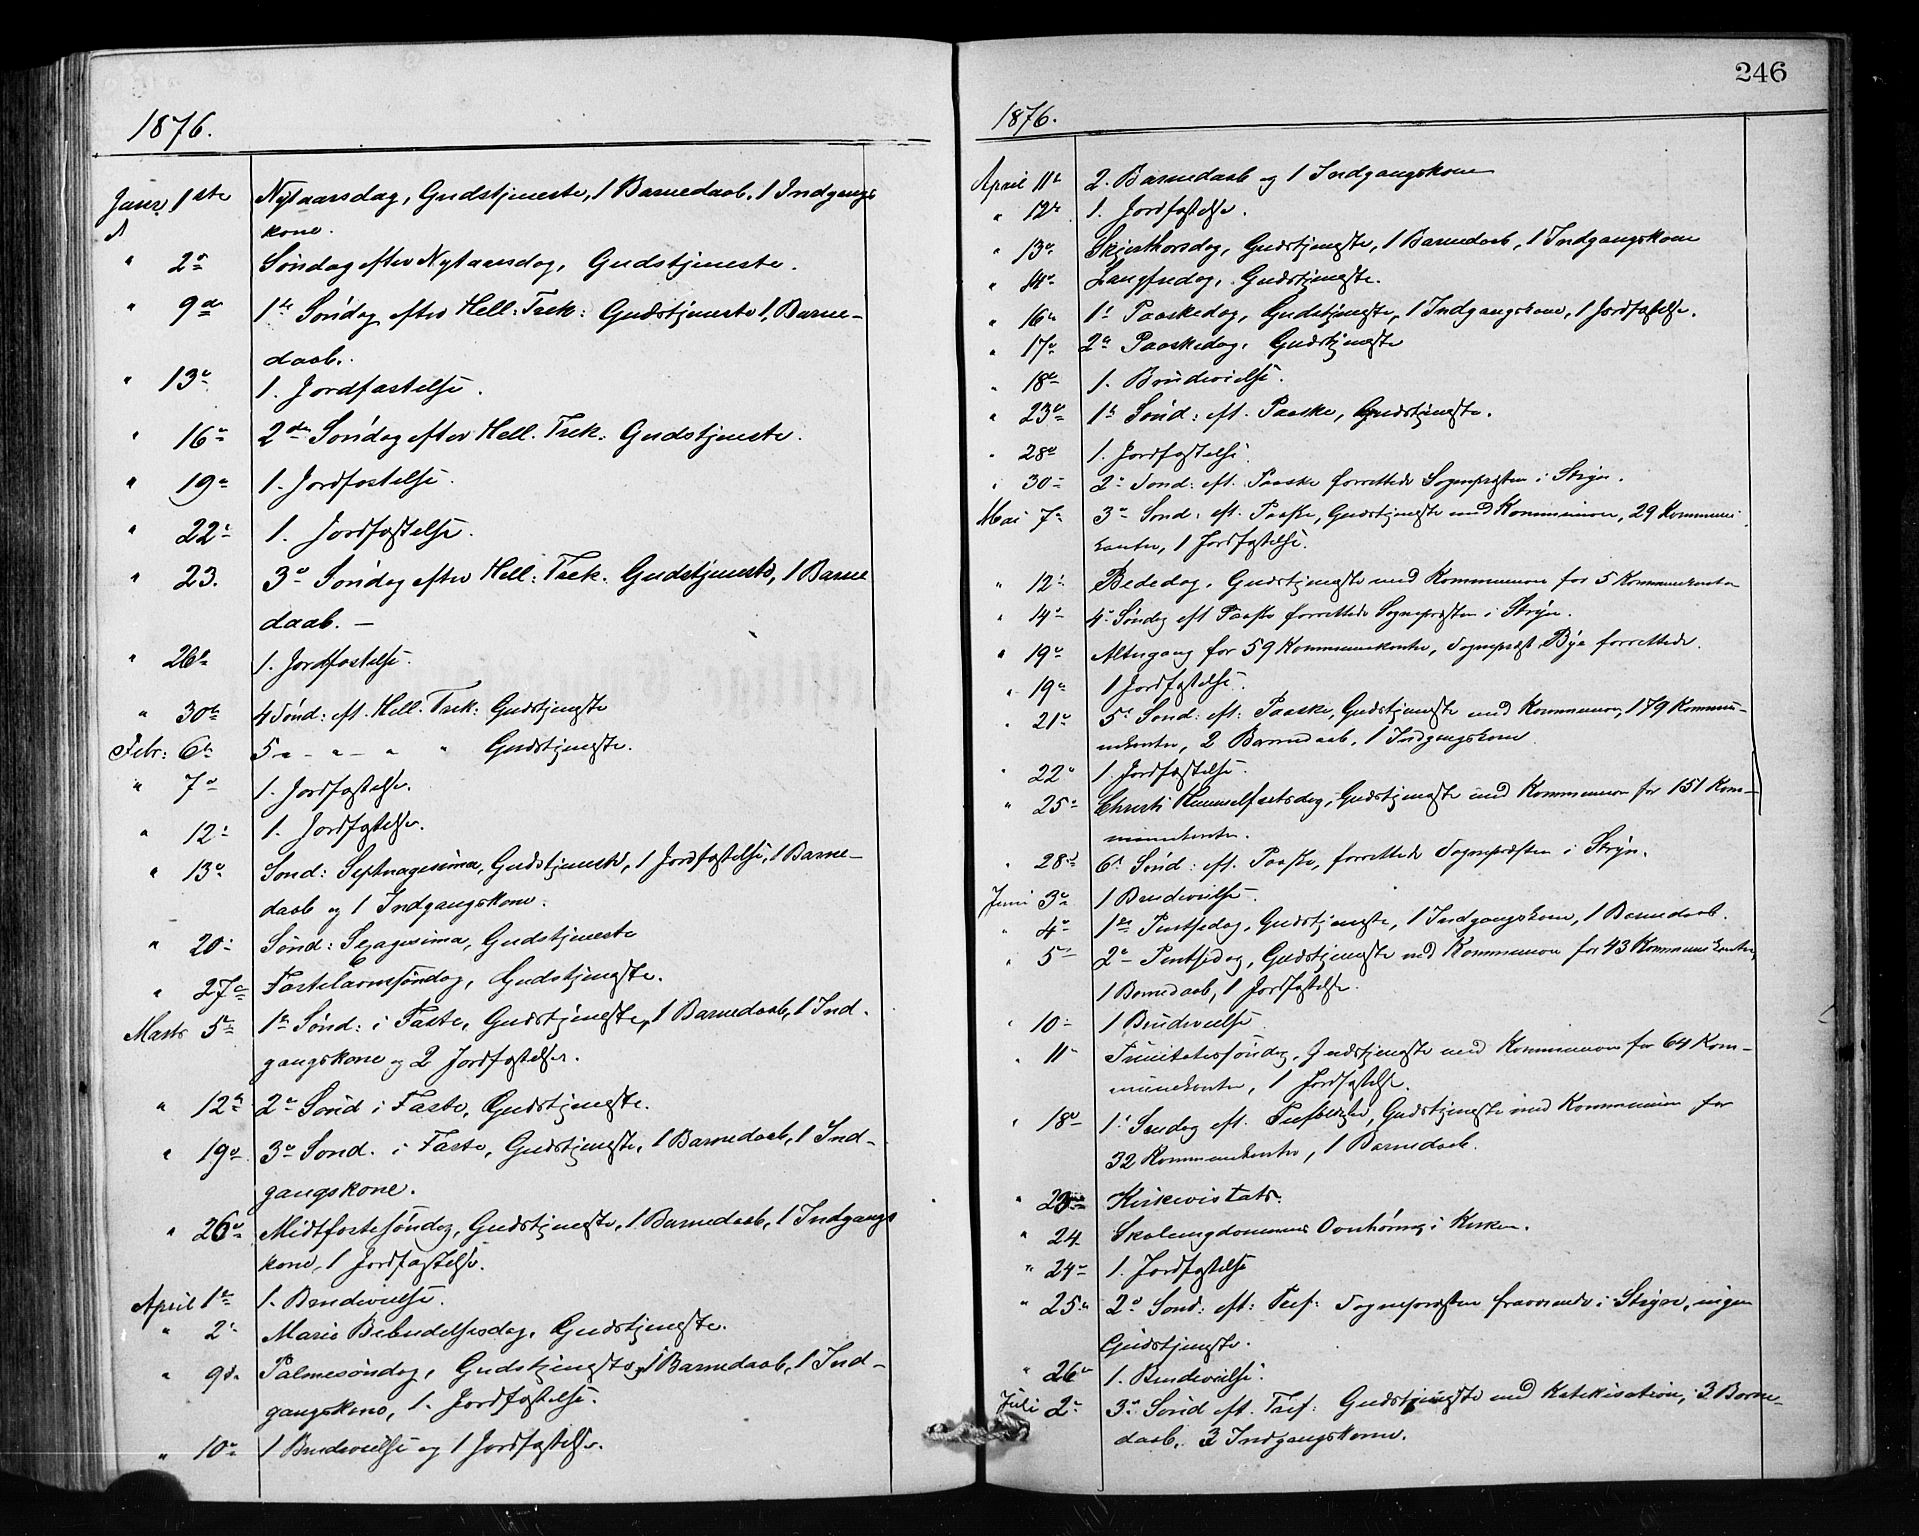 1876.
Janr 1ste Nytaarsdag, Gudstjeneste, 1 Barnedaab, 1 Indgangs
kone.
" 2n Søndag efter Nytaarsdag, Gudstjeneste.
" 9de 1ste Søndag efter Hell: Trek: Gudstjeneste 1, Barne-
daab.
" 13n 1. Jordfæstelse.
" 16n 2den Søndag efter Hell. Trek. Gudstjeneste.
" 19n 1. Jordfæstelse.
" 22n 1. Jordfæstelse.
" 23. 3n Søndag efter Hell: Trek. Gudstjeneste, 1 Barne
daab. —
" 26n 1. Jordfæstelse.
" 30n 4 Sønd: eft. Hell. Trek: Gudstjeneste
Febr: 6n 5 - " - " - " " Gudstjeneste.
" 7n 1. Jordfæstelse.
" 12n 1. Jordfæstelse.
" 13n Sønd: Septuagesima, Gudstjeneste, 1 Jordfæstelse, 1 Barne-
daab og 1 Indgangskone.
" 20n Sønd: Sexagesima, Gudstjeneste
" 27n Fastelavnssøndag, Gudstjeneste.
Marts 5n 1n Sønd: i Faste, Gudstjeneste, 1 Barnedaab, 1 Ind-
gangskone og 2 Jordfæstelser.
" 12n 2n Sønd i Faste, Gudstjeneste.
" 19n 3n Sønd. i Faste, Gudstjeneste, 1 Barnedaab, 1 Ind-
gangskone.
" 26n Midtfastesøndag, Gudstjeneste, 1 Barnedaab, 1 Indgangs
kone, 1 Jordfæstelse.
April 1n 1. Brudevielse.
" 2n Mariæ Bebudelsesdag, Gudstjeneste.
" 9de Palmesøndag, Gudstjeneste, 1 Barnedaab, 1 Ind-
gangskone, 1. Jordfæstelse.
" 10n 1 Brudevielse og 1 Jordfæstelse.
246
1876.
April 11n 2. Barnedaab og 1 Indgangskone
" 12n 1. Jordfæstelse.
" 13n Skjærthorsdag, Gudstjeneste, 1 Barnedaab, 1 Indgangskone
" 14n Langfredag, Gudstjeneste.
" 16n 1n Paaskedag, Gudstjeneste, 1 Indgangskone, 1 Jordfæstelse.
" 17n 2n Paaskedag, Gudstjeneste
" 18n 1. Brudevielse.
" 23n 1n Sønd: eft. Paaske, Gudstjeneste.
" 28n 1. Jordfæstelse.
" 30n 2n Sønd: eft. Paaske forrettede Sognepræsten i Stryn.
Mai 7n 3n Sønd: eft. Paaske, Gudstjeneste med Kommunion, 29 Kommuni
kanter, 1 Jordfæstelse.
" 12n Bededag, Gudstjeneste med Kommunion for 5 Kommunikanter
" 14n 4n Søndag eft Paaske forrettede Sognepræsten i Stryn.
" 19n Altergang for 59 Kommunikanter, Sognepræst Bye forrettede.
" 19n 1 Jordfæstelse.
" 21n 5n Sønd: eft: Paaske, Gudstjeneste med Kommunion, 179 Kommu-
nikanter, 2 Barnedaab, 1 Indgangskone.
" 22n 1. Jordfæstelse.
" 25n Christi Himmelfartsdag, Gudstjeneste med Kommunion for 151 Kom-
munikanter.
" 28n 6n Sønd: eft. Paaske, forrettede Sognepræsten i Stryn.
Juni 3n 1 Brudevielse.
" 4n 1n Pintsedag, Gudstjeneste, 1 Indgangskone, 1 Barnedaab.
" 5n 2n Pintsedag, Gudstjeneste med Kommunion for 43 Kommunikanter,
1 Barnedaab, 1 Jordfæstelse.
" 10n 1 Brudevielse
" 11n Trinitatissøndag, Gudstjeneste med Kommunion for 64 Kom-
munikanter, 1 Jordfæstelse.
" 18n 1n Søndag eft. Gudstjeneste med Kommunion for
32 Kommunikanter, 1 Barnedaab.
" 23 Kirkevisitats.
" 24 Skoleungdommens Overhøring i Kirken.
" 24n 1. Jordfæstelse
" 25n 2n Sønd: eft: Tref: Sognepræsten fraværende i Stryn, ingen
Gudstjeneste.
" 26n 1. Brudevielse.
Juli 2n 3n Sønd eft. Tref: Gudstjeneste med Katekisation, 3 Barne-
daab, 3 Indgangskone.